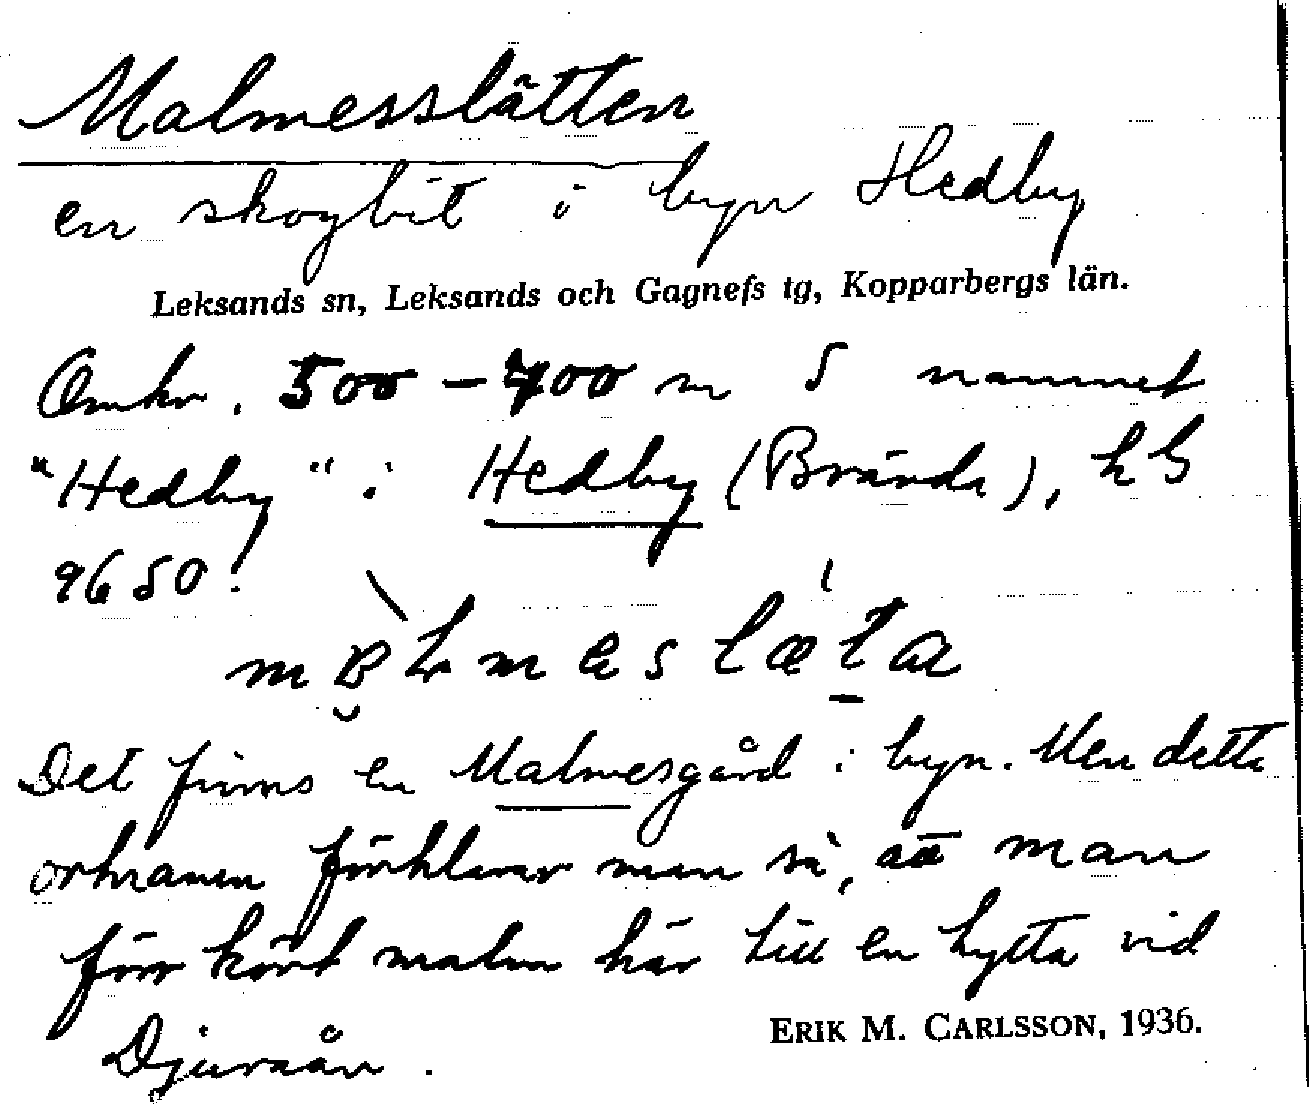 Malmesslätten
en skogbit i byn Hedby
Leksands sn, Leksands och Gagnefs tg, Kopparbergs län.
Omkr. 500-700 m S nammet
"Hedby" i Hedby (Brända), kG
9650!
Det finns en Malmesgård i byn. Men detta
ortnamn förklarar man så, att man
förr kört malm här till en hytta vid
Djuraån.
ERIK M. CARLSSON, 1936.